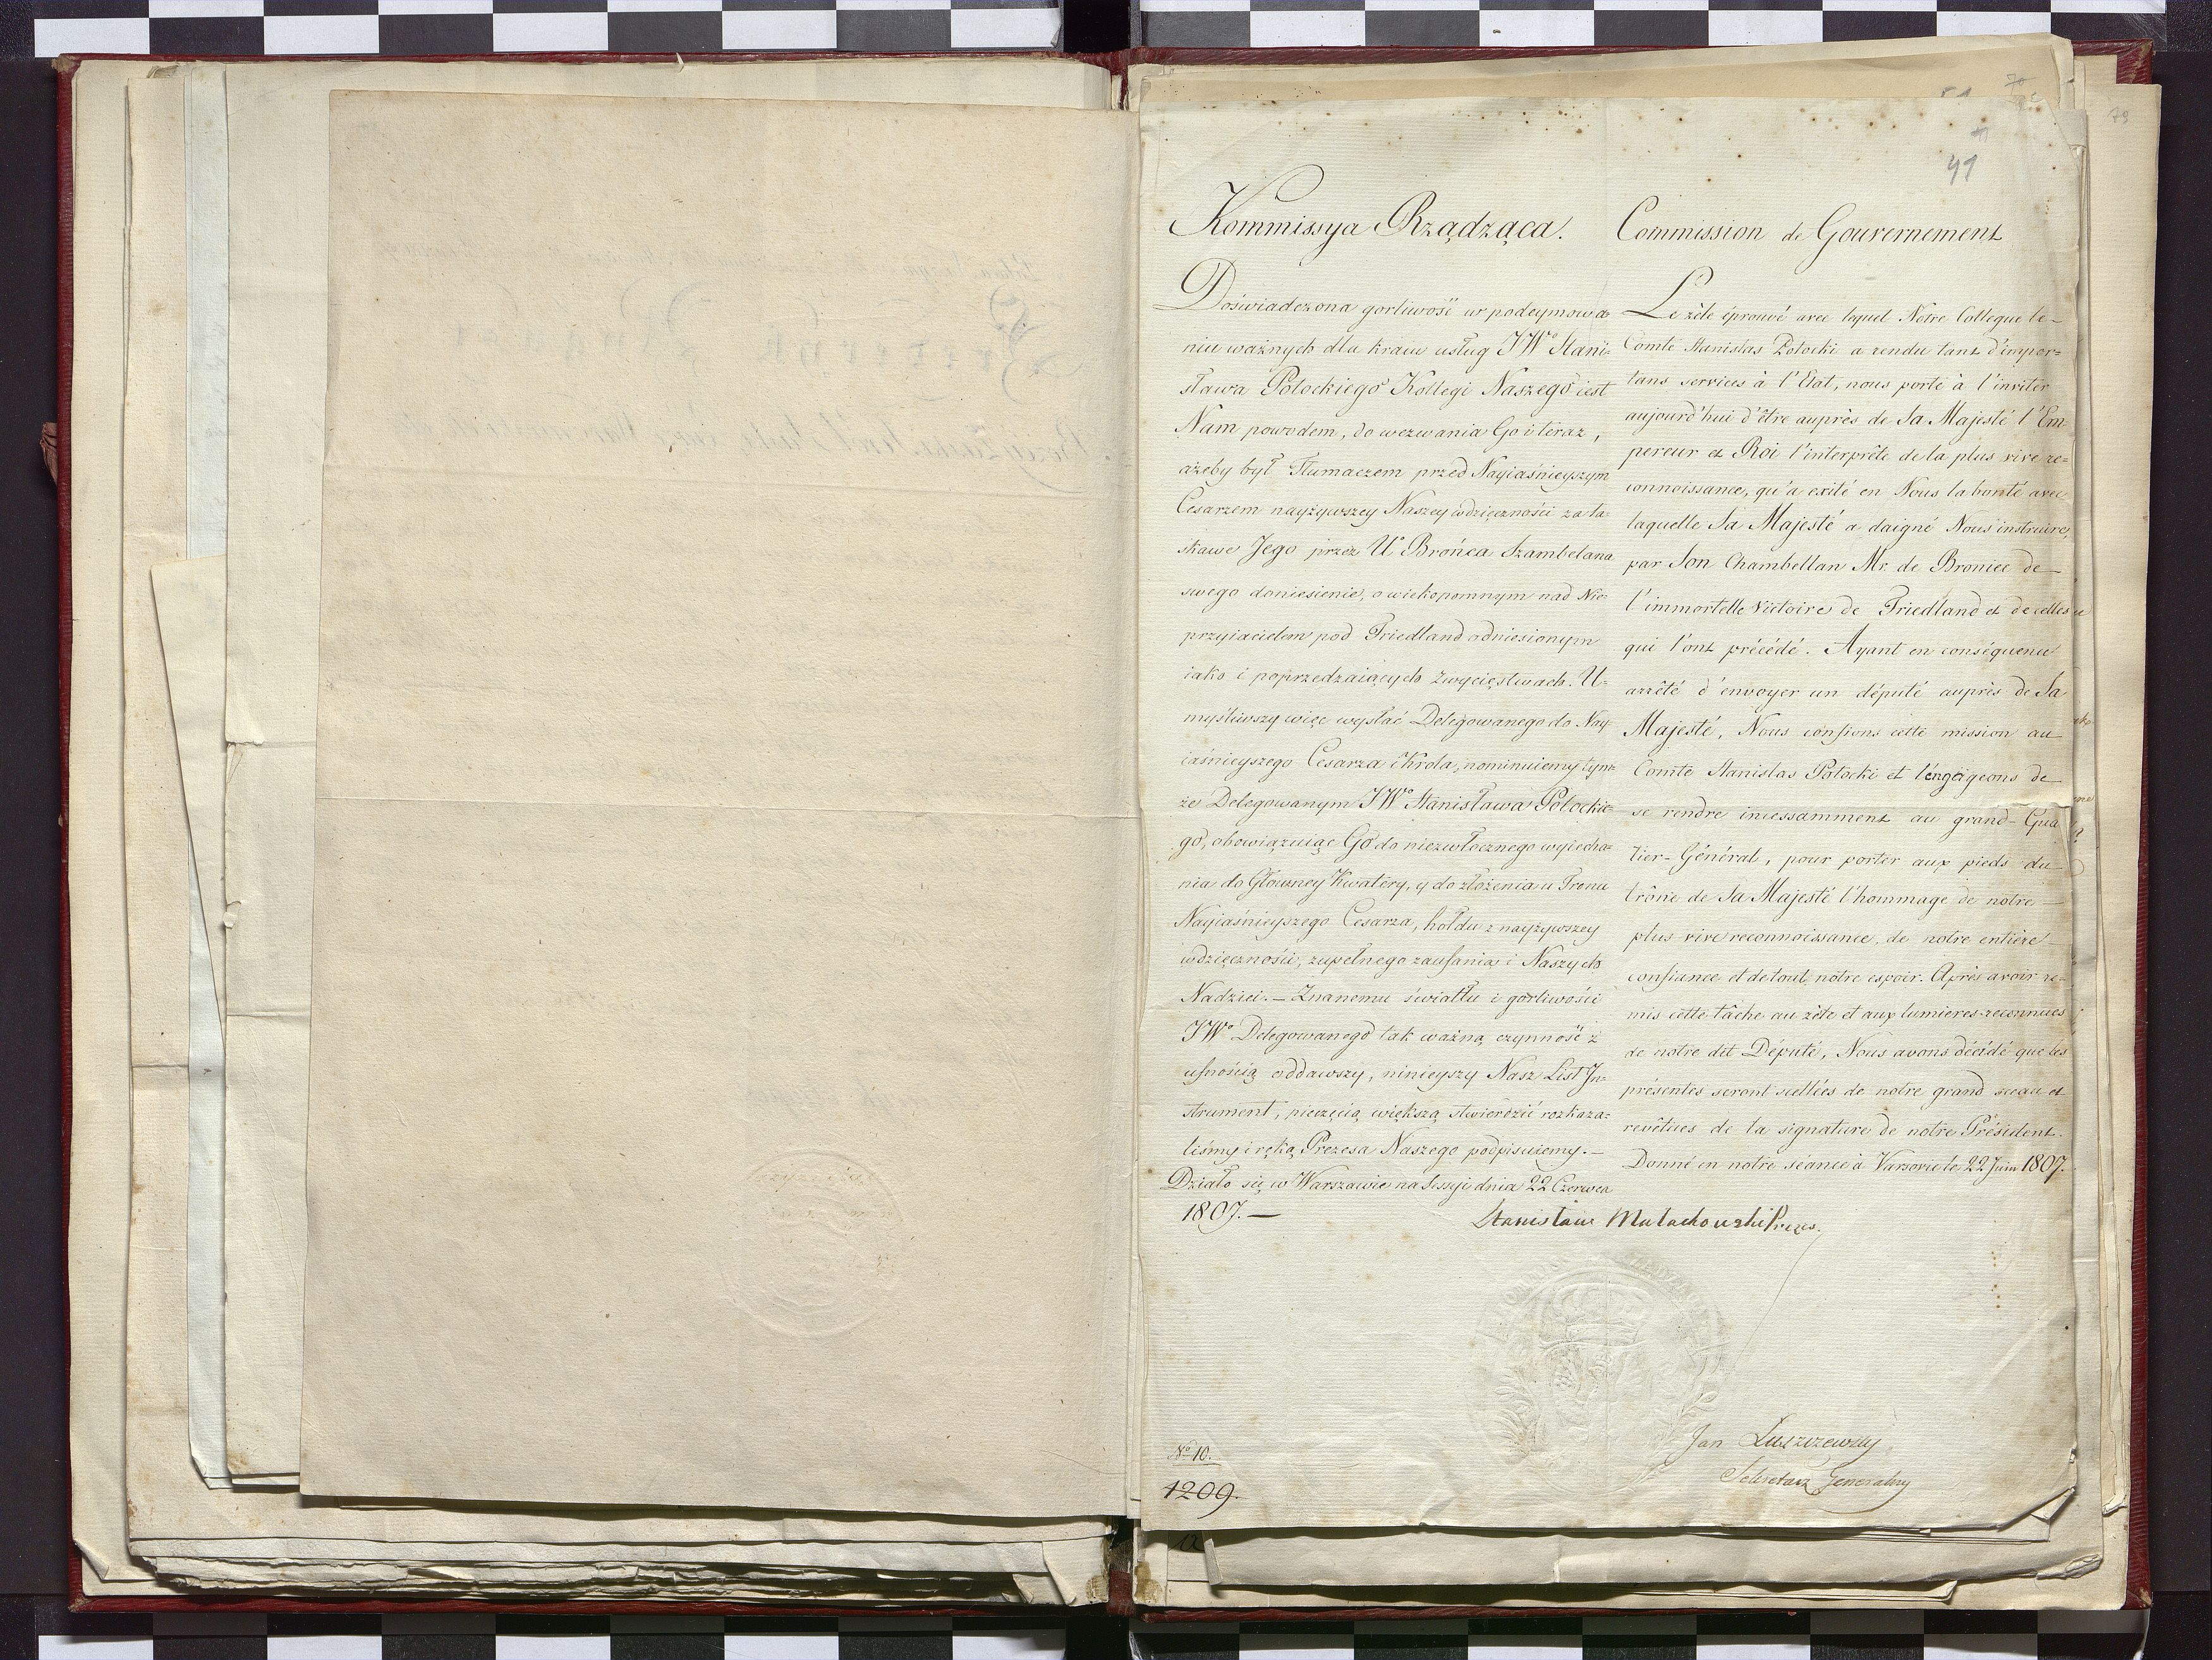 41
Kommissya Rządząca.
Doświadczona gorliwość w podeymowa-
niu ważnych dla kraiu usług JWo Stani-
sława Potockiego Kollegi Naszego iest
Nam powodem, do wezwania Go i teraz,
ażeby był Tłumaczem przed Nayiaśnieyszym
Cesarzem nayżywszey Naszey wdzięczności za ła-
skawe Jego przez Uo Brońca Szambelana
swego doniesienie, o wiekopomnym nad Nie-
przyiacielem pod Friedland odniesionym
iako i poprzedzaiących Zwycięstwach. U-
myśliwszy więc wysłać Delegowanego do Nay-
iaśnieyszego Cesarza i Krola, nominuiemy tym-
że Delegowanym JWo Stanisława Potockie-
go, obowiązuiąc Go do niezwłocznego wyiecha-
nia do Głowney Kwatery, y do złożenia u Tronu
Nayiaśnieyszego Cesarza, hołdu z nayżywszey
wdzięczności, zupełnego zaufania i Naszych
Nadziei. — Znanemu światłu i gorliwości
JWo Delegowanego tak ważną czynność z
ufnością oddawszy, ninieyszy Nasz List In-
strument, pieczęcią większą stwierdzić rozkaza-
liśmy i ręką Prezesa Naszego podpisuiemy. —
Działo się w Warszawie na Sessyi dnia 22 Czerwca
1807. —
Commission de Gouvernement
Le zèle éprouvé avec lequel Notre Collegue le
Comte Stanislas Potocki a rendu tant d'impor-
tans services à l'Etat, nous porte à l'inviter
aujourd'hui d'être auprès de Sa Majesté l'Em
pereur et Roi l'interprête de la plus vive re-
connoissance, qu'a exité en Nous la bonté avec
laquelle Sa Majesté a daigné Nous instruire,
par Son Chambellan Mr. de Broniec de
l'immortelle Victoire de Friedland et de celles
qui l'ont précédé. Ayant en conséquence
arrêté d'envoyer un député auprès de Sa
Majesté, Nous confions cette mission au
Comte Stanislas Potocki et l'engageons de
se rendre incessamment au grand-Qua
tier-Général, pour porter aux pieds du
trône de Sa Majesté l'hommage de notre
plus vive reconnoissance, de notre entière
confiance et de tout notre espoir. Après avoir re-
mis cette tâche au zèle et aux lumieres reconnues
de notre dit Député, Nous avons décidé que les
présentes seront scellées de notre grand sceau et
revêtues de la signature de notre Président.
Donné en notre séance à Varsovie le 22 Juin 1807.
Stanisław Małachowski Prezes.
Jan Łuszczewski
Sekretarz Generalny
No 10.
1209.
12
79